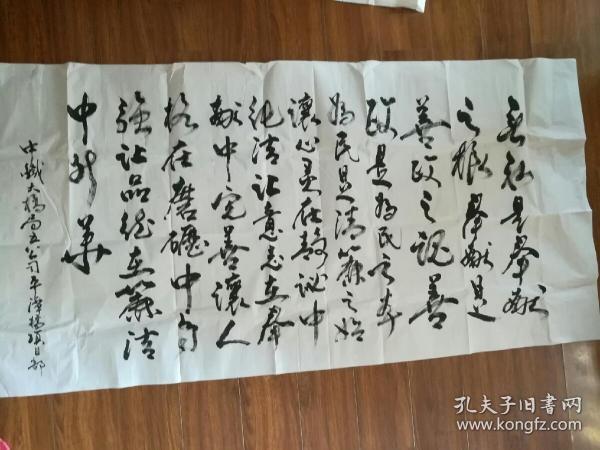 无私是奉献
之根奉献是
善政之魂善
政是为民之本
为民是清廉之始
讓心灵在静谧中
纯洁让意志在奉
献中完善讓人
格在磨砺中自
强让品德在廉洁
中升华
中铁大桥局五公司平潭桥项目部
孔夫子旧书网
www.kongfz.com